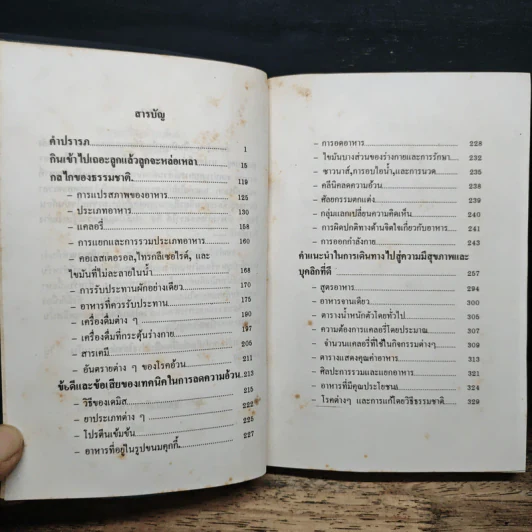 สารบัญ
คำปรารภ 1
กินเข้าไปเถอะลูกแล้วลูกจะหล่อเหลา 15
กลไกของธรรมชาติ 119
- การแปรสภาพของอาหาร 125
- ประเภทอาหาร 130
- แคลอรี่ 158
- การแยกและการรวมประเภทอาหาร 160
- คอเลสเตอรอล, ไทรกลีเซอไรด์, และ
ไขมันที่ไม่ละลายในน้ำ 168
- การรับประทานผักอย่างเดียว 170
- อาหารที่ควรรับประทาน 175
- เครื่องดื่มต่าง ๆ 190
- เครื่องดื่มที่กระตุ้นร่างกาย 197
- สารเคมี 205
- อันตรายต่าง ๆ ของโรคอ้วน 211
ข้อดีและข้อเสียของเทคนิคในการลดความอ้วน 213
- วิธีของเคมิส 215
- ยาประเภทต่าง ๆ 222
- โปรตีนเข้มข้น 225
- อาหารที่อยู่ในรูปขนมคุกกี้ 227
- การอดอาหาร 228
- ไขมันบางส่วนของร่างกายและการรักษา 232
- ซาวนาส์, การอบไอน้ำ, และการนวด 235
- คลีนิคลดความอ้วน 238
- ศัลยกรรมตกแต่ง 239
- กลุ่มแลกเปลี่ยนความคิดเห็น 240
- การผิดปกติทางด้านจิตใจเกี่ยวกับอาหาร 241
- การออกกำลังกาย 243
คำแนะนำในการเดินทางไปสู่ความมีสุขภาพและ
บุคลิกที่ดี 257
- สูตรอาหาร 294
- อาหารจานเดียว 300
- ตารางน้ำหนักตัวโดยทั่วไป 305
- ความต้องการแคลอรี่โดยประมาณ 307
- จำนวนแคลอรี่ที่ใช้ในกิจกรรมต่างๆ 309
- ตารางแสดงคุณค่าอาหาร 313
- ศิลปะการรวมและแยกอาหาร 321
- อาหารที่มีคุณประโยชน์ 324
- โรคต่างๆ และการแก้โดยวิธีธรรมชาติ 329